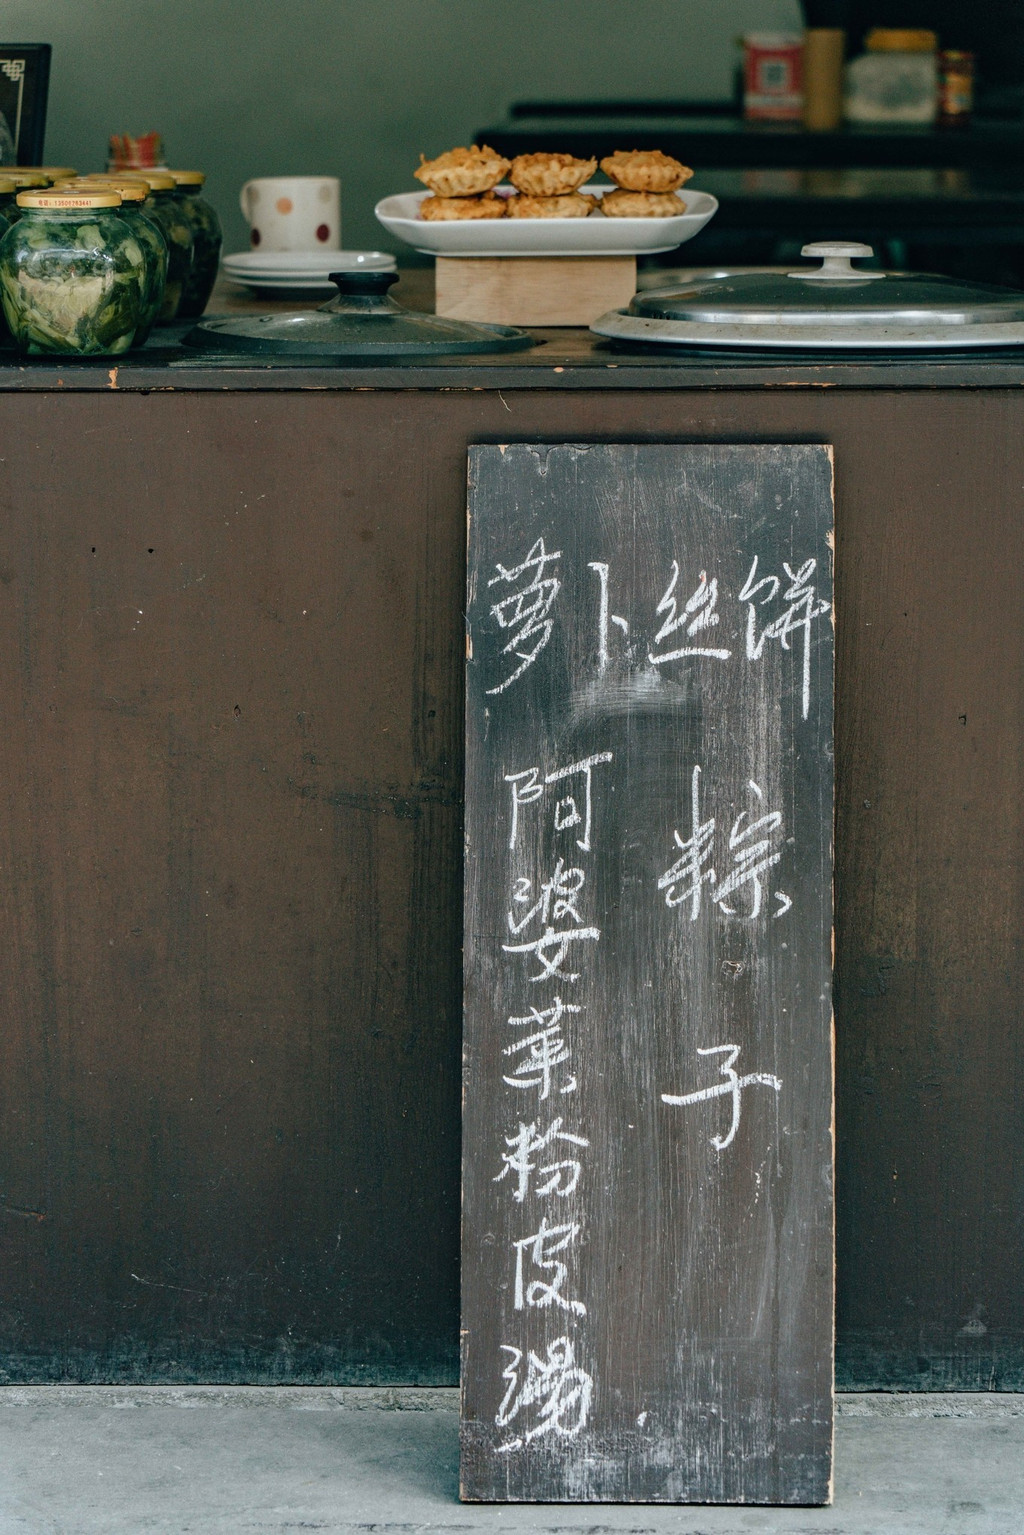 萝卜丝饼
粽子
阿婆菜粉皮湯